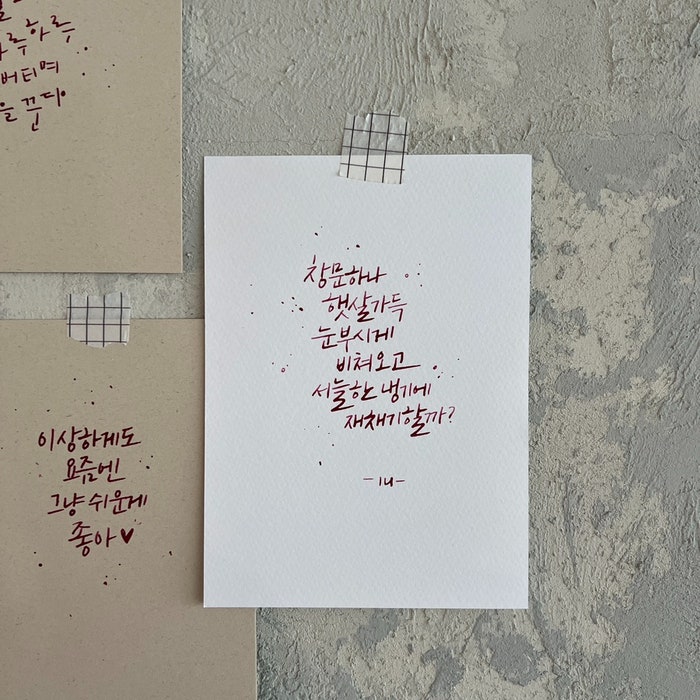 하루하루
버티며
을 꾼다
창문하나
햇살가득
눈부시게
비쳐오고
서늘한 냉기에
재채기할까?
이상하게도
요즘엔
그냥 쉬운게
좋아♥